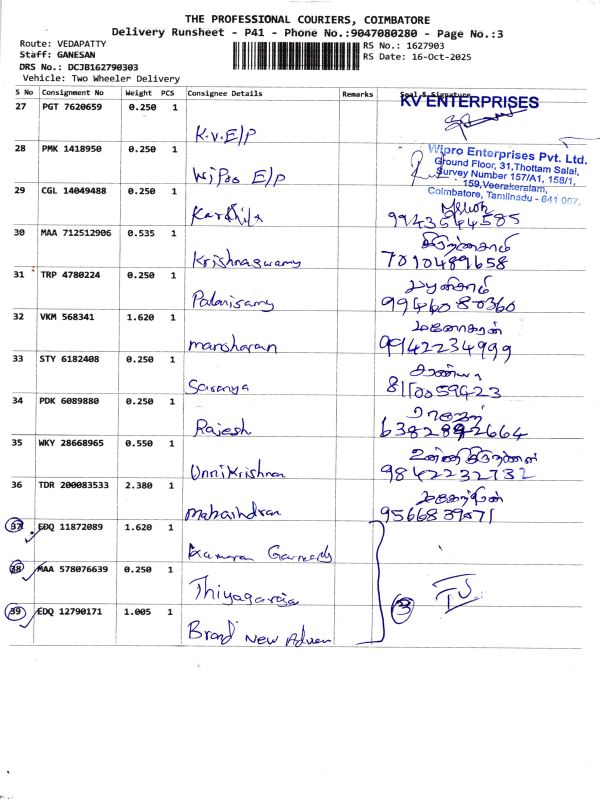 THE PROFESSIONAL COURIERS, COIMBATORE
Delivery Runsheet - P41 - Phone No.:9047080280 - Page No.:3
Route: VEDAPATTY
Staff: GANESAN
DRS No.: DCJB162790303
Vehicle: Two Wheeler Delivery
RS No.: 1627903
RS Date: 16-Oct-2025
S No Consignment No Weight PCS Consignee Details Remarks Seal & Signature
27 PGT 7620659 0.250 1
KV ENTERPRISES
K.V.E/P
28 PMK 1418950 0.250 1
Wipro Enterprises Pvt. Ltd.
Ground Floor, 31,Thottam Salai,
Survey Number 157/A1, 158/1,
159,Veerakeralam,
Coimbatore, Tamilnadu - 641 007.
Wipro E/P
29 CGL 14049488 0.250 1
Karthik
30 MAA 712512906 0.535 1
Krishnaswamy 7010489658
31 TRP 4780224 0.250 1
Palanisamy 9944080360
32 VKM 568341 1.620 1
மனோகரன்
manoharan 9942234999
33 STY 6182408 0.250 1
சரண்யா
Saranya 8110059423
34 PDK 6089880 0.250 1
ராஜேஷ்
Rajesh
35 WKY 28668965 0.550 1
உன்னிகிருஷ்ணன்
Unnikrishnan 9842232732
36 TDR 200083533 2.380 1
மகேந்திரன்
Mahaindran
37 EDQ 11872089 1.620 1
Garments
38 MAA 578076639 0.250 1
Thiyagaraja
39 EDQ 12790171 1.005 1
3
Brand New Adven